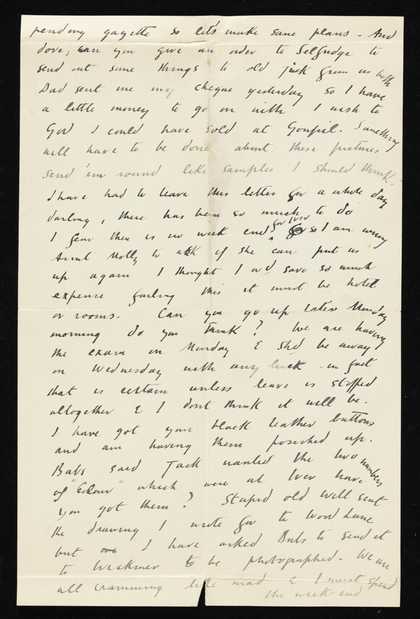 pending gazette so let's make some plans - And
dove, can you give an order to Selfridge to
send out some things to old Jack from us both
Dad sent me my cheque yesterday so I have
a little money to go on with I wish to
God I could have sold at Goupil. Something
will have to be done about these pictures
send 'em round like samples I should think.
I have had to leave this letter for a whole day
darling, there has been so much to do
I fear there is no week end for Iver so I am wiring
Aunt Molly to ask if she can put us
up again I thought I w'd save so much
expense failing this it must be hotel
or rooms. Can you go up latest Monday
morning do you think? We are having
the exam on Monday & sh'd be away
on Wednesday with any luck - in fact
that is certain unless leave is stopped
altogether & I don't think it will be.
I have got your black leather buttons
and am having them polished up.
Babs said Jack wanted the two numbers
of "Colour" which were at Iver have
you got them? Stupid old Well sent
the drawing I wrote for to Wood Lane
but I have asked Babs to send it
to to be photographed. We are
all cramming like mad & I must spend
the week end